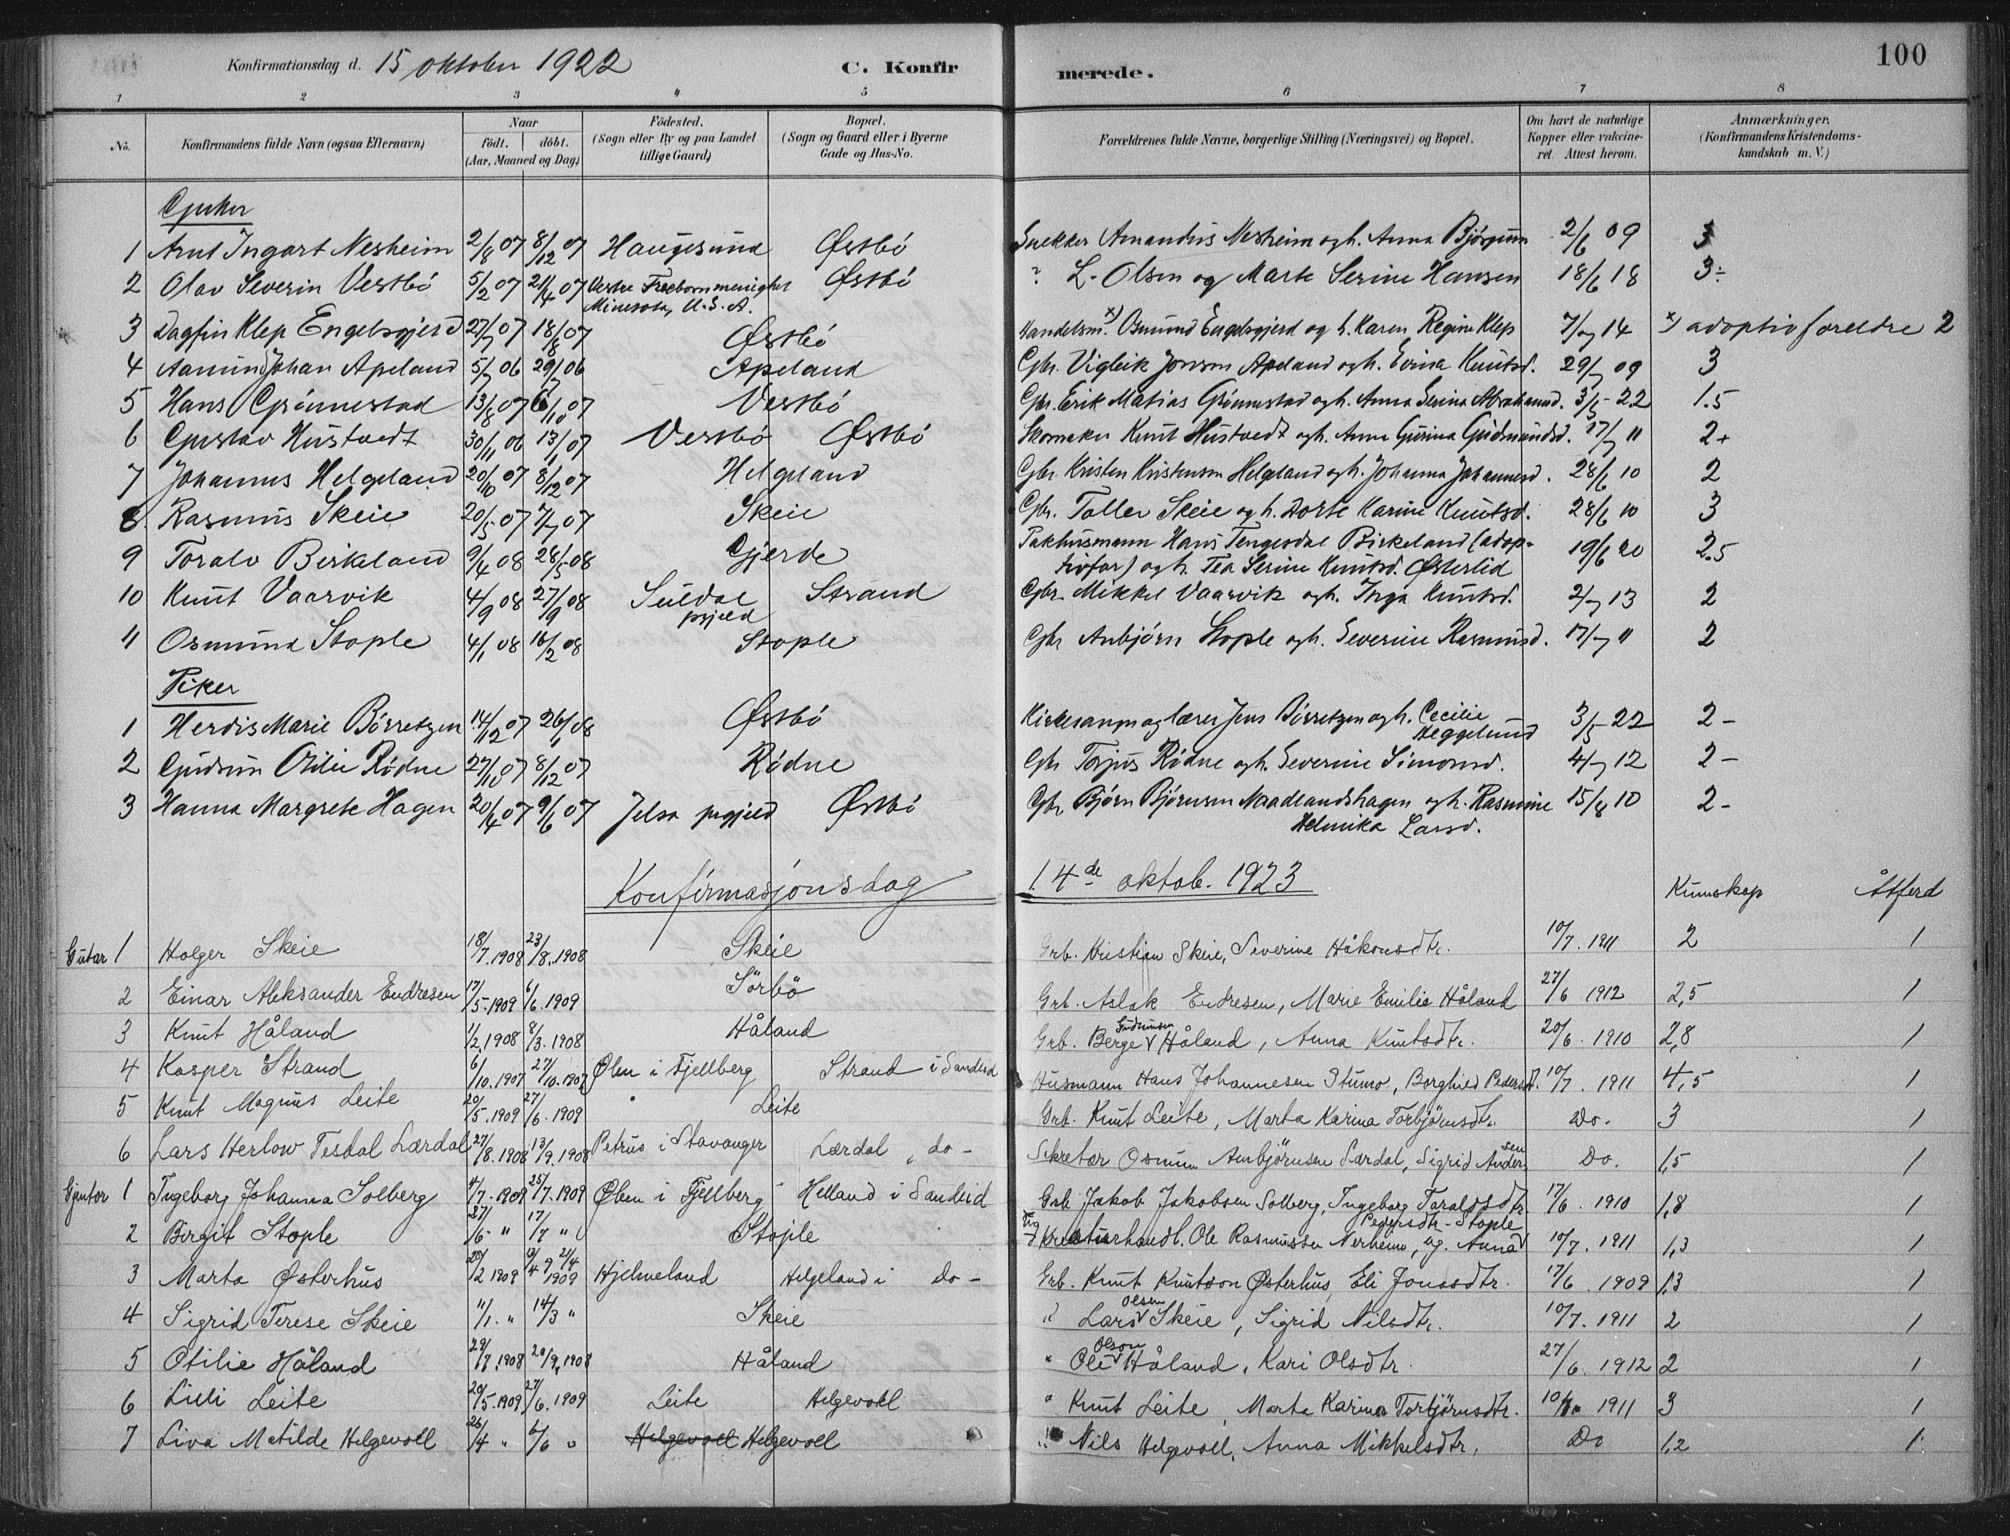 100
Konfirmationsdag d. 15 oktober 1922 C. Konfirmerede.
1 2 3 4 5 6 7 8
No. Konfirmandens fulde Navn (ogsaa Efternavn) Naar födt. döbt. (Aar, Maaned og Dag) Födested. (Sogn eller By og paa Landet tillige Gaard) Bopæl. (Sogn og Gaard eller i Byerne Gade og Hus-No. Forældrenes fulde Navne, borgerlige Stilling (Næringsvei) og Bopæl. Om havt de naturlige Kopper eller vaccineret. Attest herom. Anmærkninger. (Konfirmandens Kristendomskundskab m. V.)
Gutter
1 Arnt Ingart Nesheim 2/8 07 8/12 07 Haugesund Østbö Snekker Amandus Nesheim og h. Anna Bjørgum 2/6 09 3
2 Olav Severin Vestbö 5/2 07 21/4 07 Vestre Freeborn menighet Minesota, U.S.A. Østbö " L. Olsen og Marte Serine Hansen 18/6 18 3÷
3 Dagfin Klep Engelsgjerd 27/7 07 18/8 07 Østbö Handelsm. x) Osmund Engelsgjerd og h. Karen Regine Klep 7/7 14 x) adoptivforeldre 2
4 Aamund Johan Apeland 5/7 06 29/7 06 Apeland Gbr. Vigleik Jonson Apeland og h. Evina Knutsd. 29/7 09 3
5 Hans Grönnestad 13/8 07 6/10 07 Vestbö Gbr. Erik Matias Grönnestad og h. Anna Serina Abrahamsd. 3/5 22 1.5
6 Gustav Hustvedt 30/11 06 13/1 07 Vestbö Østbö Skomaker Knut Hustvedt og h. Anna Gurina Gudmundsd. 17/7 11 2+
7 Johannes Helgeland 20/10 07 8/12 07 Helgeland Gbr. Kristen Kristensen Helgeland og h. Johanna Johannesd. 28/6 10 2
8 Rasmus Skeie 20/5 07 7/7 07 Skeie Gbr. Tollef Skeie og h. Dorte Karine Knutsd. 28/6 10 3
9 Toralv Birkeland 9/4 08 28/5 08 Gjerde Pakhusmann Hans Tengesdal Birkeland (adoptivfar) og h. Tea Serine Knutsd. Østerlid 19/6 20 2.5
10 Knut Vaarvik 4/9 08 27/9 08 Suldal prgjeld Strand Gbr. Mikkel Vaarvik og h. Inga Knutsd. 2/7 13 2
11 Osmund Stople 4/1 08 16/2 08 Stople Gbr Anbjørn Stople og h. Severine Rasmusd. 17/7 11 2
Piker
1 Herdis Marie Börretzen 14/12 07 26/1 08 Østbö Kirkesanger og lærer Jens Börretzen og h. Cecilie Heggelund 3/5 22 2-
2 Gudrun Otilie Rødne 27/10 07 8/12 07 Rødne Gbr Torjus Rødne og h. Severine Simonsd. 4/7 12 2-
3 Hanna Margrete Hagen 20/4 07 9/6 07 Jelsa prgjeld Østbö Gbr Bjørn Bjørnsen Maadlandshagen og h. Rasmine Helmika Larsd. 15/8 10 2-
Konfirmasjonsdag 14de oktob. 1923 Kunnskap Åtferd
Gutar 1 Holger Skeie 18/7. 1908 23/8. 1908 Skeie Grb. Kristian Skeie, Severine Håkonsdtr. 10/7. 1911 2 1
2 Einar Aleksander Endresen 17/5. 1909 6/6. 1909 Sörbö Grb. Aslak Endresen, Marie Emilie Håland 27/6 1912 2,5 1
3 Knut Håland 1/2. 1908 8/3. 1908 Håland Grb. Berge Gudmunsen Håland, Anna Knutsdtr. 20/6. 1910 2,8 1
4 Kasper Strand 6/10. 1907 27/10. 1907 Ølen i Fjellberg Strand i Sandeid Husmann Hans Johannesen Stumo, Borghild Pedersdt. 10/7. 1911 4,5 1
5 Knut Magnus Leite 20/5. 1909 27/6. 1909 Leite Grb. Knut Leite, Marta Karina Torbjörnsdtr. Do. 3 1
6 Lars Herlow Tesdal Lærdal 27/8. 1908 13/9. 1908 Petrus i Stavanger Lærdal, do- Sekretær Osmun Ambjörnsen Lærdal, Sigrid Andersen Do. 1,5 1
Gjentor 1 Ingeborg Johanna Solberg 4/7. 1909 25/7. 1909 Ølen i Fjellberg Helland i Sandeid Grb Jakob Jakobsen Solberg, Ingeborg Taraldsdtr. 17/6. 1910 1,8 1
2 Birgit Stople 27/6- " 17/7 " Stople Kreaturhandl. Ole Rasmussen Nerheim, ug. Anna Pedersdtr- Stople 10/7. 1911 1,3 1
3 Marta Østerhus 1909 1909 Hjelmeland Helgeland i do- Grb. Knut Knutson Østerhus, Eli Jonasdtr. 17/6. 1909 1,3 1
4 Sigrid Terese Skeie 11/1. " 14/3 " Skeie " Lars Olsen Skeie, Sigrid Nilsdtr. 10/7. 1911 2 1
5 Otilie Håland 1908 20/9. 1908 Håland " Ole Olson Håland, Kari Olsdtr. 27/6. 1912 2 1
6 Lilli Leite 20/5. 1909 27/6. 1909 Leite Helgevoll " Knut Leite, Marta Karina Torbjörnsdtr. 1911 3 1
7 Liva Matilde Helgevoll 26/4 " 6/6 " Helgevoll Helgevoll " Nils Helgevoll, Anna Mikkelsdtr. Do 1,2 1